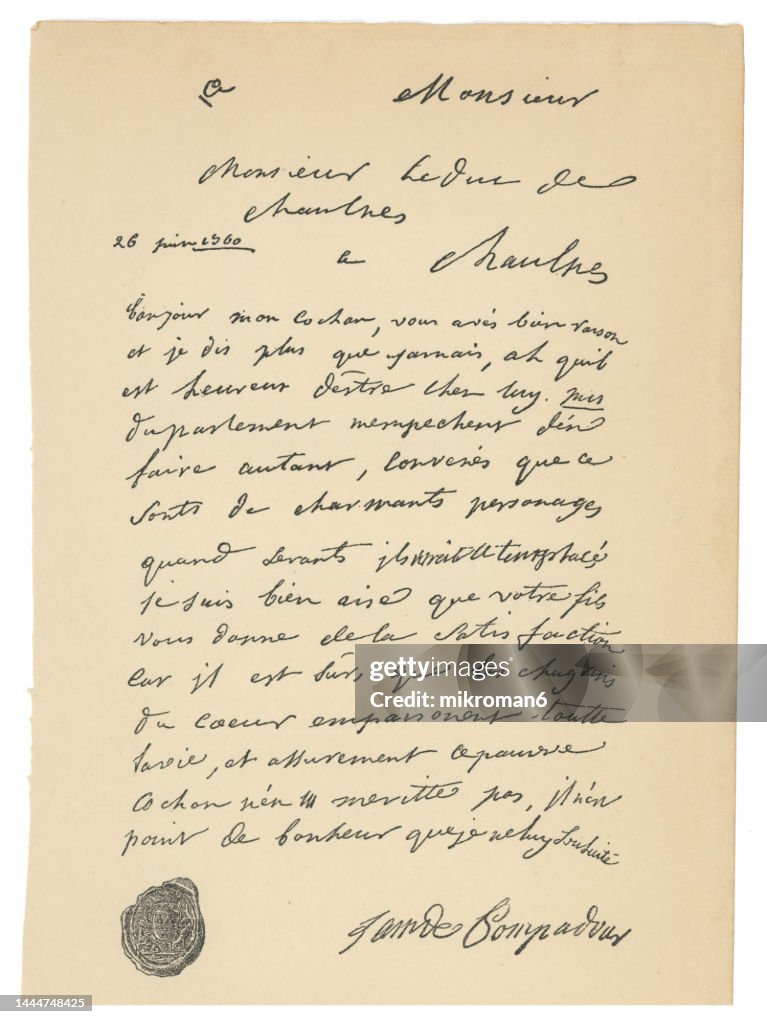 a Monsieur
Monsieur Le Duc de
Chaulnes
26 juin 1760
a Chaulnes
bonjour mon cochon, vous avés bien raison
et je dis plus que jamais, ah quil
est heureux dèstre cher luy. mrs
du parlement mempechent dén
faire autant, convenés que ce
sonts de charmants personages
quand devants
je suis bien aise que votre fils
vous donne de la satisfaction
car jl est sûrs que les chagrins
du coeur empoisonent toutte
lavie, et assurement cepauvre
cochon nén meritte pas, jl nén
point de bonheur queje neluy souhaite
Pompadour
gettyimages
Credit: mikroman6
1444748425